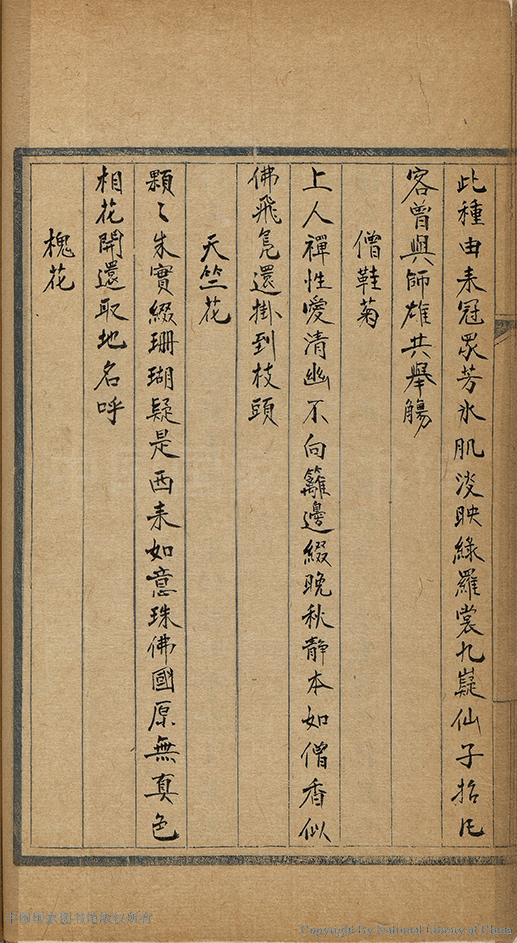 此種由來冠眾芳氷肌淡映綠羅裳九嶷仙子招凡
客曾與師雄共舉觴
僧鞋菊
上人禪性愛清幽不向籬邊綴晚秋静本如僧香似
佛飛凫還掛到枝頭
天竺花
顆〻朱實綴珊瑚疑是西来如意珠佛國原無真色
相花開還取地名呼
槐花
中國國家圖書館版權所有
Copyright by National Library of China